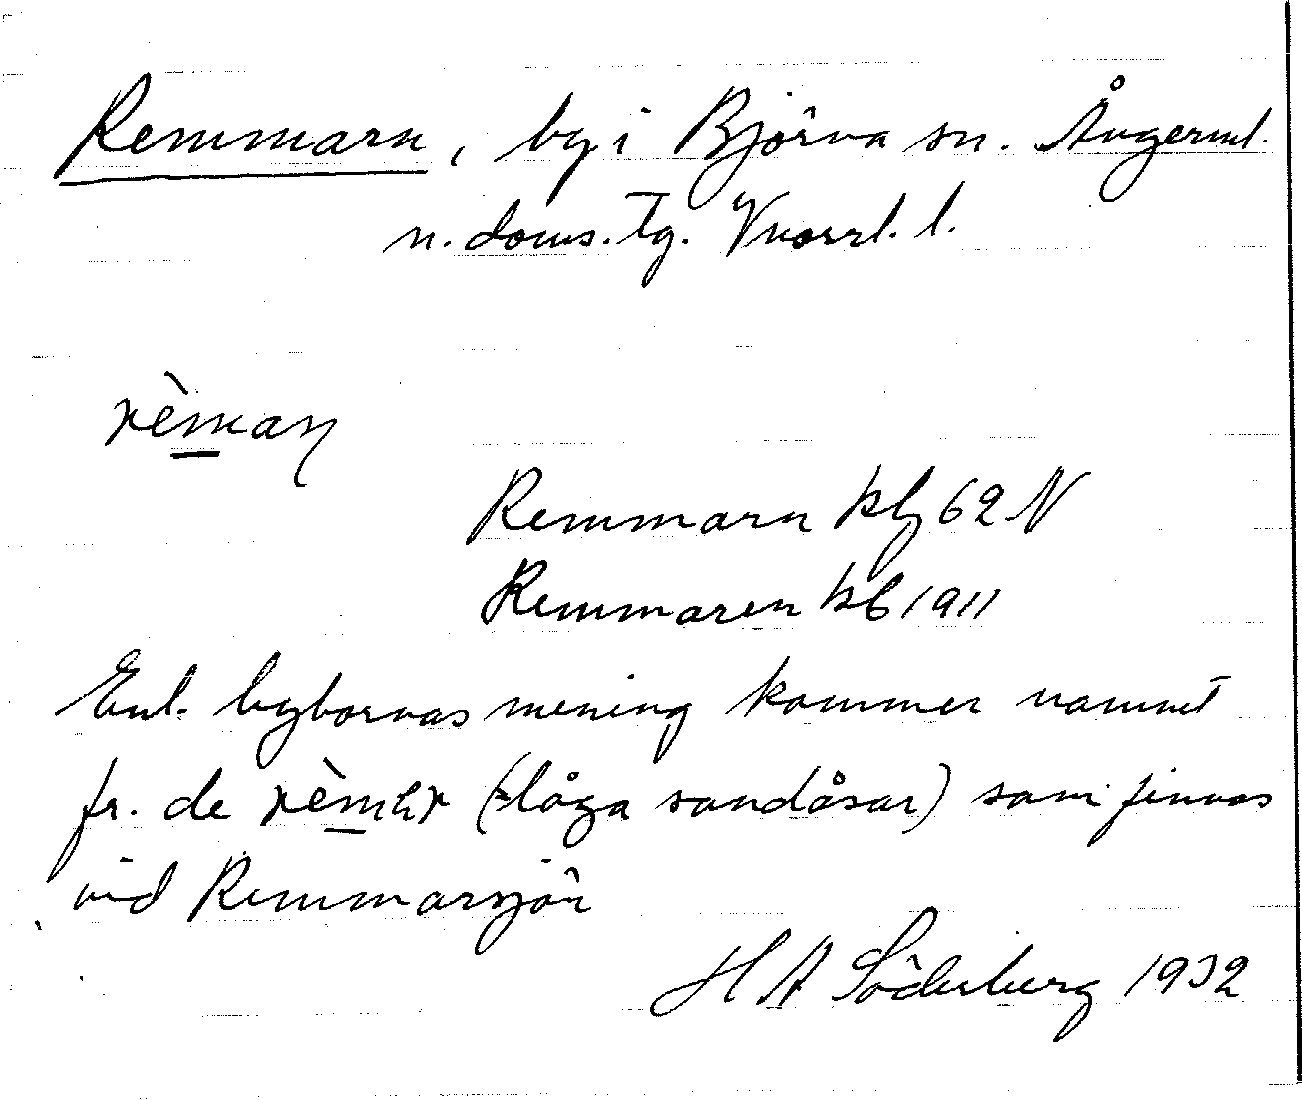 Remmarn, by i Björna sn. Ångerml.
n. doms. tg. Vnorrl. l.
rèmaɳ
Remmarn kbl 62 N
Remmaren kb 1911
Enl. bybornas mening kommer namnet
fr. de (= låga sandåsar) som finnas
vid Remmarsjön
H A Söderberg 1932